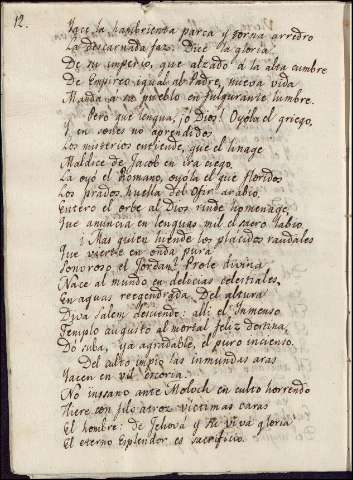 12.
Yace la hambrienta parca y torna arredro
La descarnada faz. Dice la gloria
De su imperio, que alzado à la alta cumbre
De Empireo igual al Padre, nueva vida
Manda a su pueblo en fulgurante lumbre.
Pero que lengua, ¡ò Dios! Oyóla el griego,
Y en sones no aprendidos
Los misterios entiende, que el linage
Maldice de Jacob en ira ciego.
La oyó el Romano, oyola el que floridos
Los prados huella del Ofir arabio.
Entero el orbe al Dios rinde homenage,
Que anuncia en lenguas mil el sacro labio.
¡Mas quien hiende los placidos raudales
Que vierte en onda pura
Sonoroso el Jordan! Prole divina
Nace al mundo en delicias celestiales,
En aguas reegendrada. Del altura
Diva Salem desciende: alli el Inmenso
Templo augusto al mortal feliz destina,
Dó suba, ya agradable, el puro incienso.
Del culto impio las inmundas aras
Yacen en vil escoria.
No insano ante Moloch en culto horrendo
Hiere con filo atroz victimas caras
El hombre: de Jehova y su viva gloria
El eterno Esplendor es sacrificio.